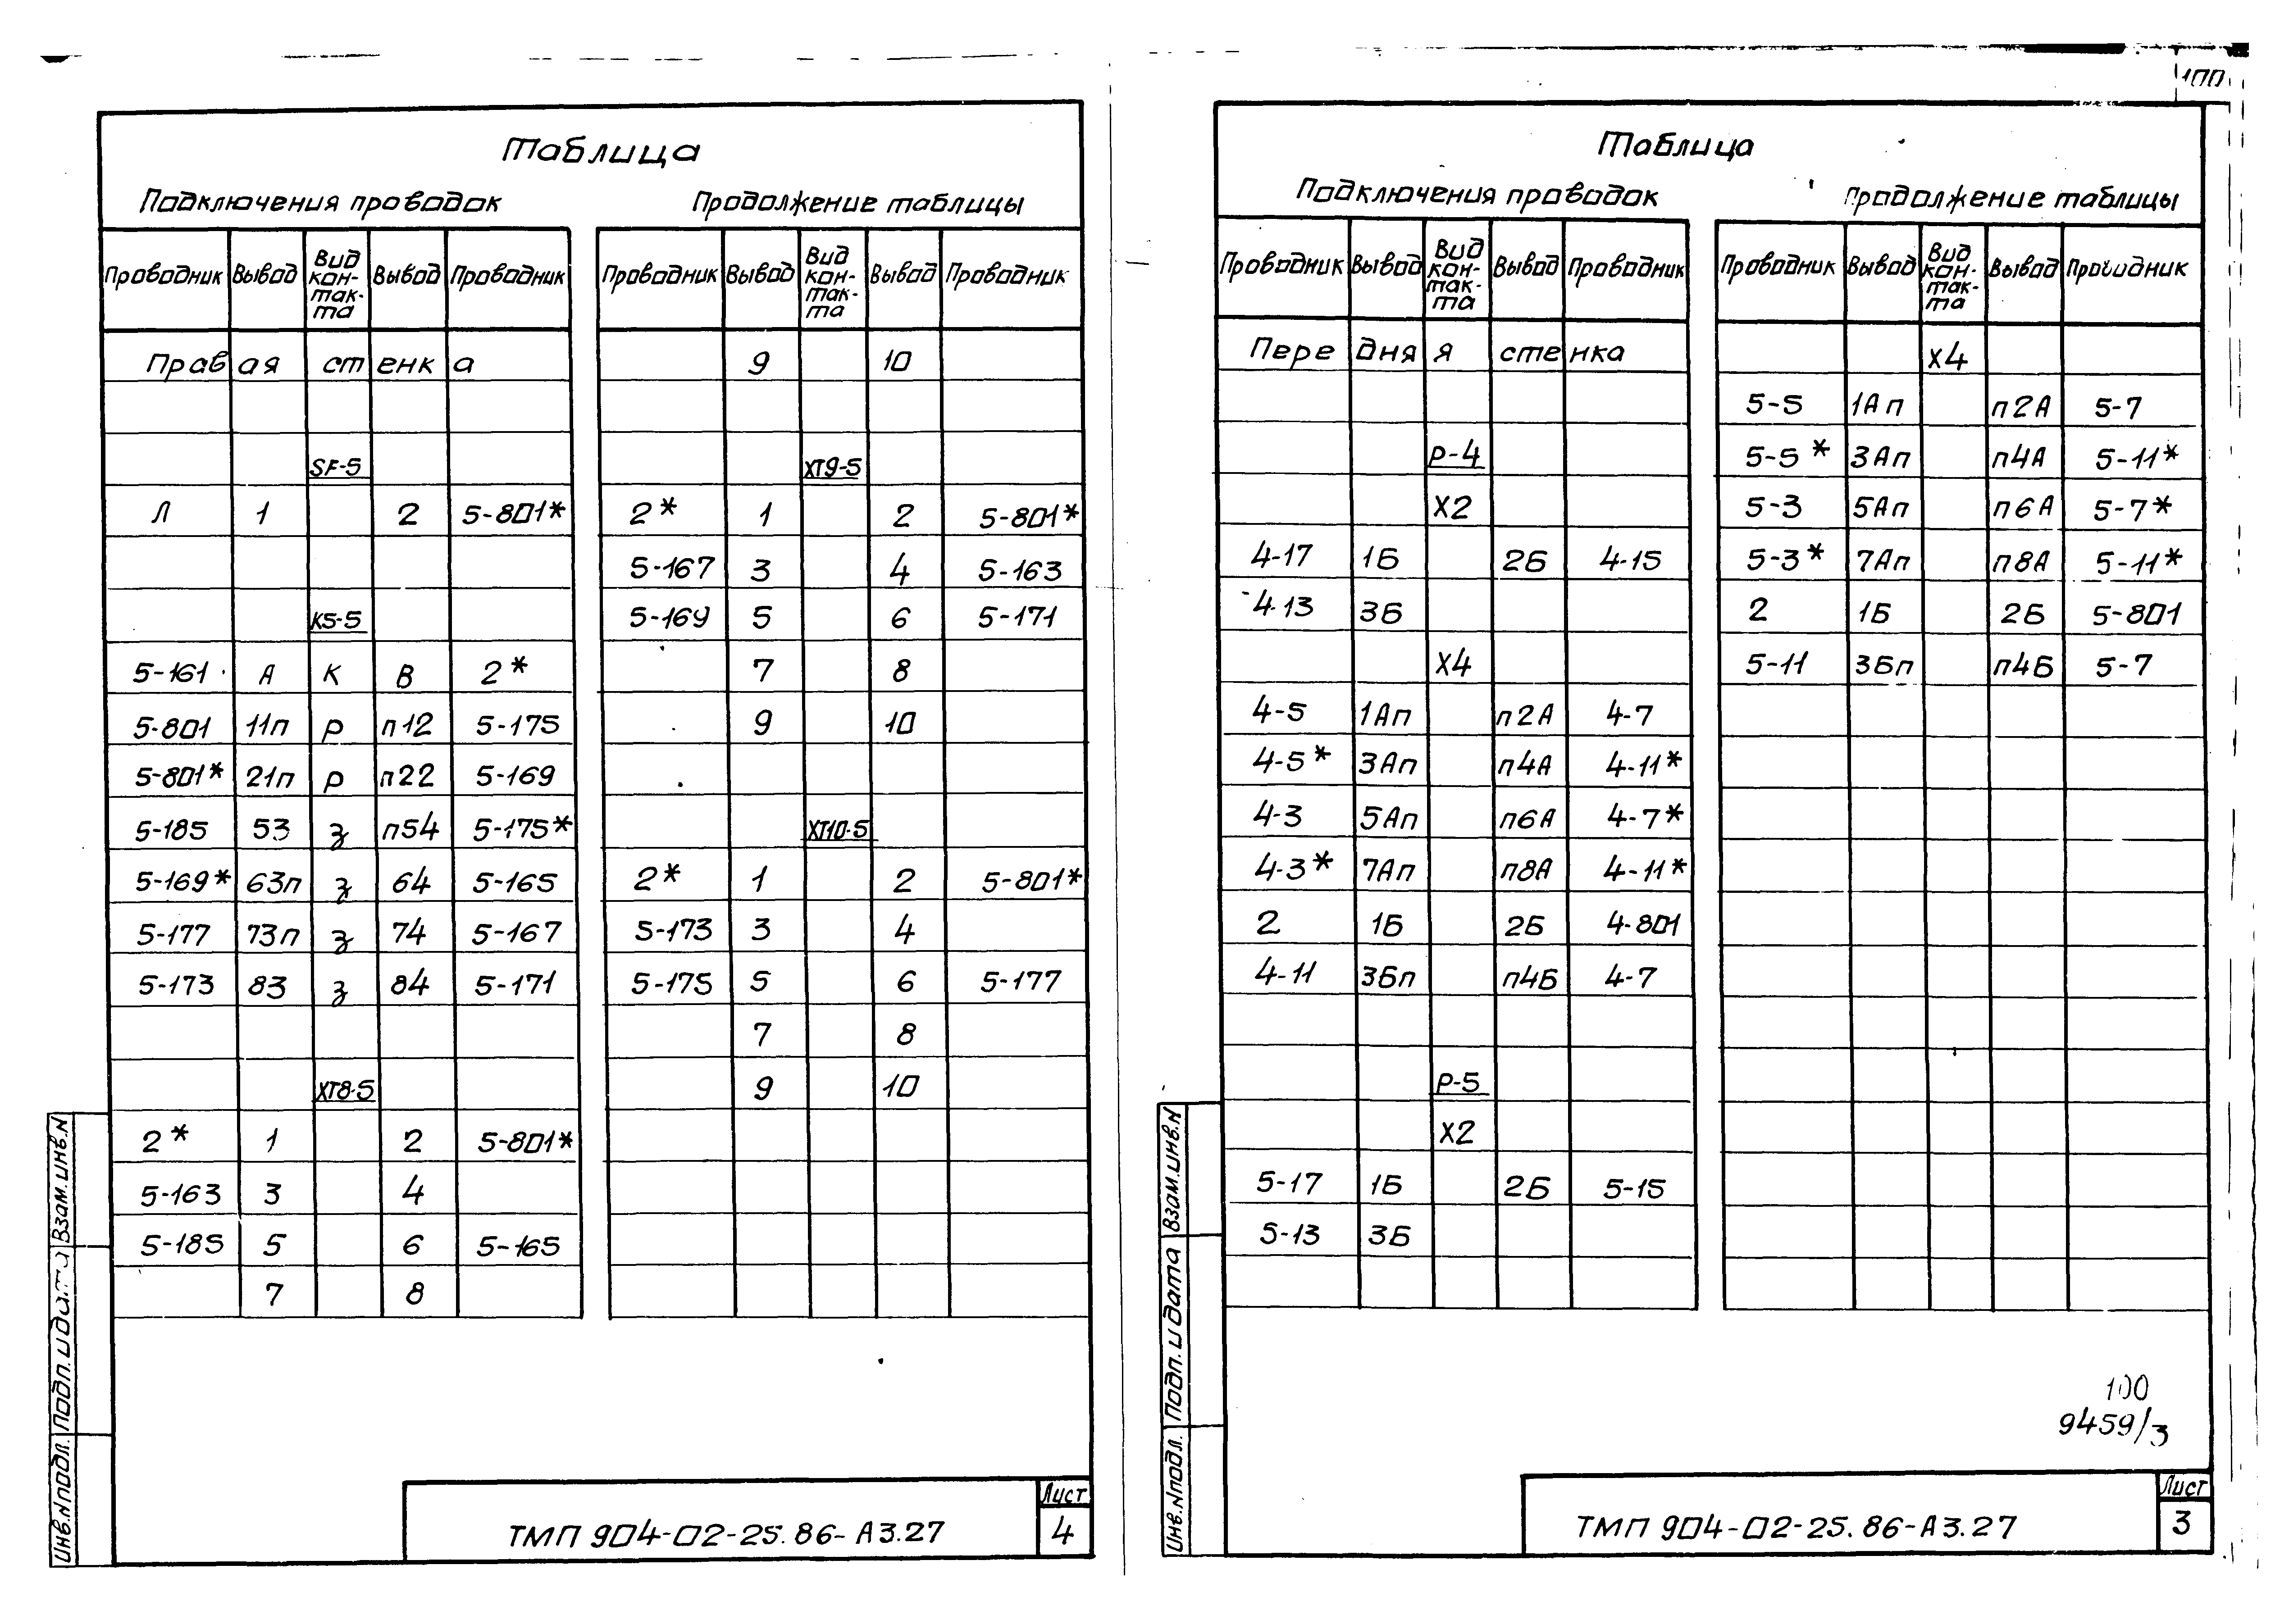 100
Таблица
Подключения проводок
Продолжение таблицы
Проводник Вывод Вид кон-такта Вывод Проводник
Правая стенка
SF-5
Л 1 2 5-801*
K5-5
5-161 А К В 2*
5-801 11п р п12 5-175
5-801* 21п р п22 5-169
5-185 53 з п54 5-175*
5-169* 63п з 64 5-165
5-177 73п з 74 5-167
5-173 83 з 84 5-171
XT8-5
2* 1 2 5-801*
5-163 3 4
5-185 5 6 5-165
7 8
Проводник Вывод Вид кон-так-та Вывод Проводник
9 10
XT9-5
2* 1 2 5-801*
5-167 3 4 5-163
5-169 5 6 5-171
7 8
9 10
XT10-5
2* 1 2 5-801*
5-173 3 4
5-175 5 6 5-177
7 8
9 10
Инв.N подл. Подп. и дата Взам.инв.N
ТМП 904-02-25.86-А3.27
Лист
4
Таблица
Подключения проводок
Продолжение таблицы
Проводник Вывод Вид кон-так-та Вывод Проводник
Передняя стенка
Р-4
X2
4-17 1Б 2Б 4-15
4-13 3Б
X4
4-5 1Ап п2А 4-7
4-5* 3Ап п4А 4-11*
4-3 5Ап п6А 4-7*
4-3* 7Ап п8А 4-11*
2 1Б 2Б 4-801
4-11 3Бп п4Б 4-7
Р-5
X2
5-17 1Б 2Б 5-15
5-13 3Б
Проводник Вывод Вид кон-так-та Вывод Проводник
X4
5-5 1Ап п2А 5-7
5-5* 3Ап п4А 5-11*
5-3 5Ап п6А 5-7*
5-3* 7Ап п8А 5-11*
2 1Б 2Б 5-801
5-11 3Бп п4Б 5-7
100
9459/3
Инв.N подл. Подп. и дата Взам.инв.N
ТМП 904-02-25.86-А3.27
Лист
3